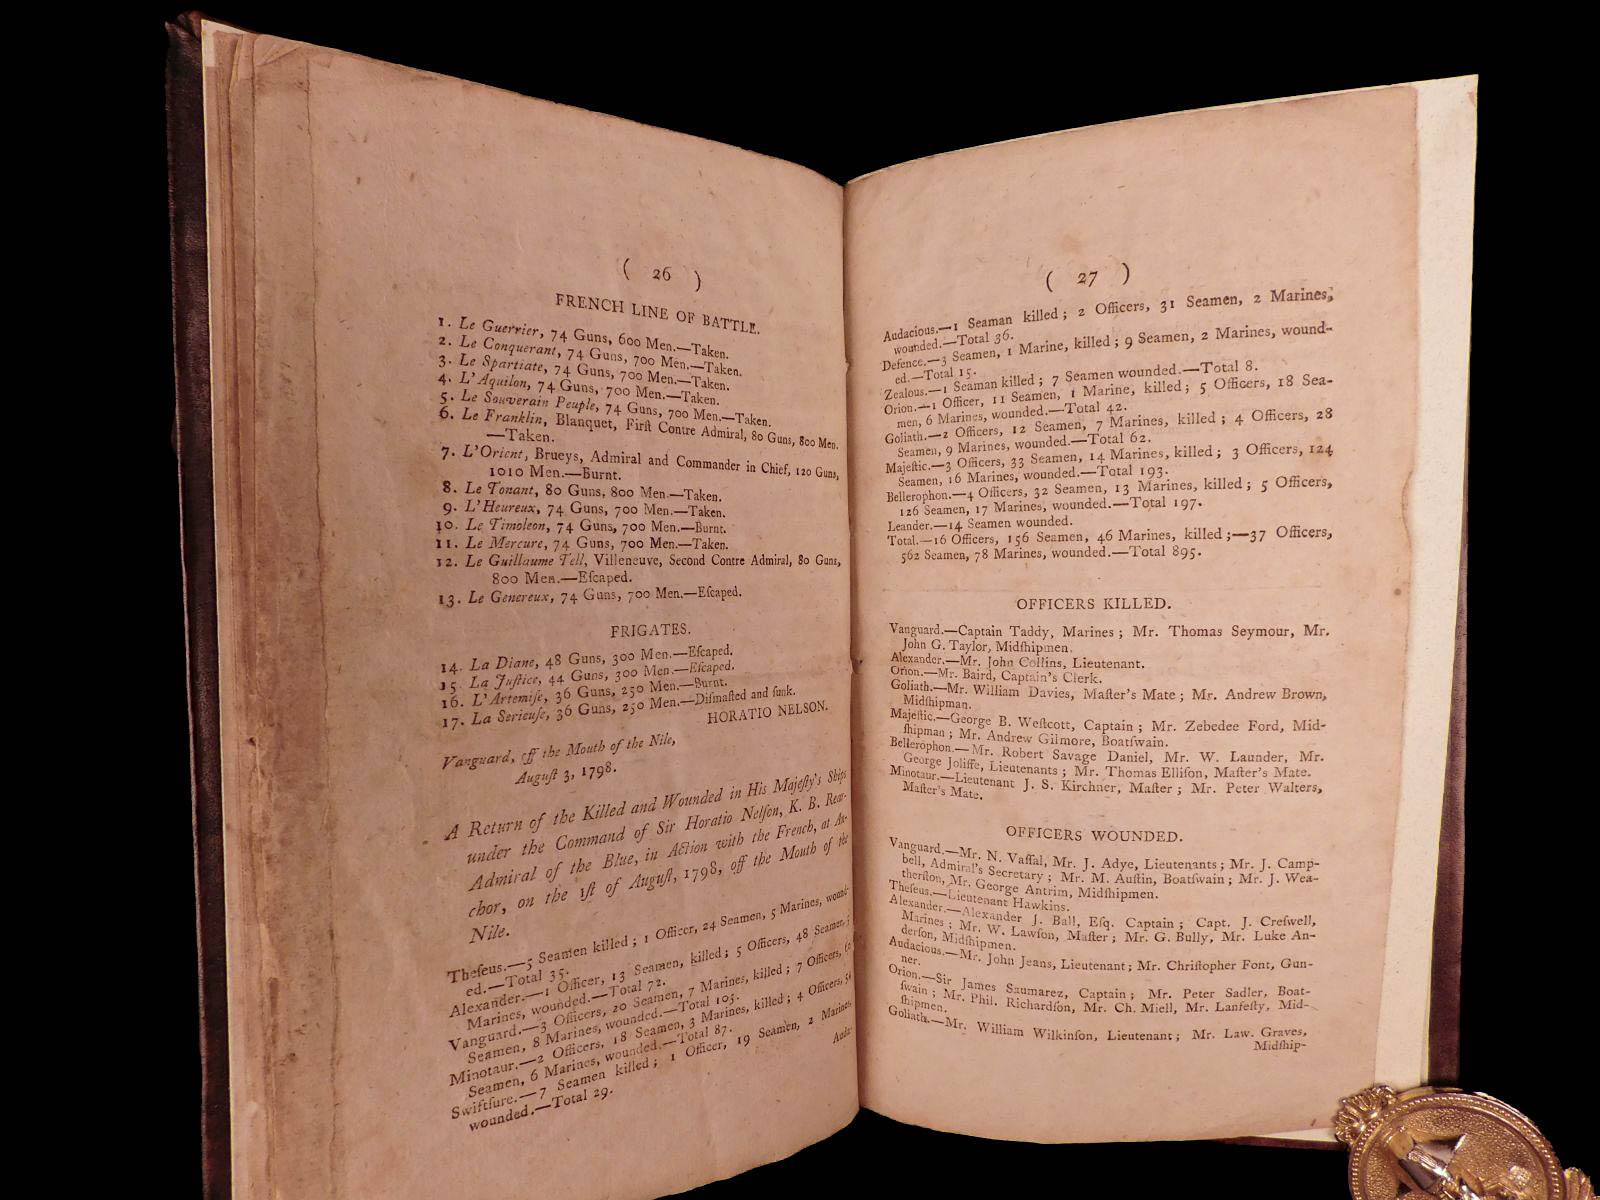 ( 26 )
FRENCH LINE OF BATTLE.
1. Le Guerrier, 74 Guns, 600 Men.—Taken.
2. Le Conquerant, 74 Guns, 700 Men.—Taken.
3. Le Spartiate, 74 Guns, 700 Men.—Taken.
4. L'Aquilon, 74 Guns, 700 Men.—Taken.
5. Le Souverain Peuple, 74 Guns, 700 Men.—Taken.
6. Le Franklin, Blanquet, Firſt Contre Admiral, 80 Guns, 800 Men.
—Taken.
7. L'Orient, Brueys, Admiral and Commander in Chief, 120 Guns,
1010 Men.—Burnt.
8. Le Tonant, 80 Guns, 800 Men.—Taken.
9. L'Heureux, 74 Guns, 700 Men.—Taken.
10. Le Timoleon, 74 Guns, 700 Men.—Burnt.
11. Le Mercure, 74 Guns, 700 Men.—Taken.
12. Le Guillaume Tell, Villeneuve, Second Contre Admiral, 80 Guns,
800 Men.—Eſcaped.
13. Le Genereux, 74 Guns, 700 Men.—Eſcaped.
FRIGATES.
14. La Diane, 48 Guns, 300 Men.—Eſcaped.
15. La Juſtice, 44 Guns, 300 Men.—Eſcaped.
16. L'Artemiſe, 36 Guns, 250 Men.—Burnt.
17. La Serieuſe, 36 Guns, 250 Men.—Diſmaſted and ſunk.
HORATIO NELSON.
Vanguard, off the Mouth of the Nile,
Auguſt 3, 1798.
A Return of the Killed and Wounded in His Majeſty's Ships
under the Command of Sir Horatio Nelſon, K. B. Rear-
Admiral of the Blue, in Action with the French, at An-
chor, on the 1ſt of Auguſt, 1798, off the Mouth of the
Nile.
Theſeus.—5 Seamen killed; 1 Officer, 24 Seamen, 5 Marines, wound-
ed.—Total 35.
Alexander.—1 Officer, 13 Seamen, killed; 5 Officers, 48 Seamen, 5
Marines, wounded.—Total 72.
Vanguard.—3 Officers, 20 Seamen, 7 Marines, killed; 7 Officers, 60
Seamen, 8 Marines, wounded.—Total 105.
Minotaur.—2 Officers, 18 Seamen, 3 Marines, killed; 4 Officers, 54
Seamen, 6 Marines, wounded.—Total 87.
Swiftſure.—7 Seamen killed; 1 Officer, 19 Seamen, 2 Marines,
wounded.—Total 29.
Auda-
( 27 )
Audacious.—1 Seaman killed; 2 Officers, 31 Seamen, 2 Marines,
wounded.—Total 36.
Defence.—3 Seamen, 1 Marine, killed; 9 Seamen, 2 Marines, wound-
ed.—Total 15.
Zealous.—1 Seaman killed; 7 Seamen wounded.—Total 8.
Orion.—1 Officer, 11 Seamen, 1 Marine, killed; 5 Officers, 18 Sea-
men, 6 Marines, wounded.—Total 42.
Goliath.—2 Officers, 12 Seamen, 7 Marines, killed; 4 Officers, 28
Seamen, 9 Marines, wounded.—Total 62.
Majeſtic.—3 Officers, 33 Seamen, 14 Marines, killed; 3 Officers, 124
Seamen, 16 Marines, wounded.—Total 193.
Bellerophon.—4 Officers, 32 Seamen, 13 Marines, killed; 5 Officers,
126 Seamen, 17 Marines, wounded.—Total 197.
Leander.—14 Seamen wounded.
Total.—16 Officers, 156 Seamen, 46 Marines, killed;—37 Officers,
562 Seamen, 78 Marines, wounded.—Total 895.
OFFICERS KILLED.
Vanguard.—Captain Taddy, Marines; Mr. Thomas Seymour, Mr.
John G. Taylor, Midſhipmen.
Alexander.—Mr. John Collins, Lieutenant.
Orion.—Mr. Baird, Captain's Clerk.
Goliath.—Mr. William Davies, Maſter's Mate; Mr. Andrew Brown,
Midſhipman.
Majeſtic.—George B. Weſtcott, Captain; Mr. Zebedee Ford, Mid-
ſhipman; Mr. Andrew Gilmore, Boatſwain.
Bellerophon.—Mr. Robert Savage Daniel, Mr. W. Launder, Mr.
George Joliffe, Lieutenants; Mr. Thomas Elliſon, Maſter's Mate.
Minotaur.—Lieutenant J. S. Kirchner, Maſter; Mr. Peter Walters,
Maſter's Mate.
OFFICERS WOUNDED.
Vanguard.—Mr. N. Vaſſal, Mr. J. Adye, Lieutenants; Mr. J. Camp-
bell, Admiral's Secretary; Mr. M. Auſtin, Boatſwain; Mr. J. Wea-
therſton, Mr. George Antrim, Midſhipmen.
Theſeus.—Lieutenant Hawkins.
Alexander.—Alexander J. Ball, Eſq. Captain; Capt. J. Creſwell,
Marines; Mr. W. Lawſon, Maſter; Mr. G. Bully, Mr. Luke An-
derſon, Midſhipmen.
Audacious.—Mr. John Jeans, Lieutenant; Mr. Chriſtopher Font, Gun-
ner.
Orion.—Sir James Saumarez, Captain; Mr. Peter Sadler, Boat-
ſwain; Mr. Phil. Richardſon, Mr. Ch. Miell, Mr. Lanfeſty, Mid-
ſhipmen.
Goliath.—Mr. William Wilkinſon, Lieutenant; Mr. Law. Graves,
Midſhip-